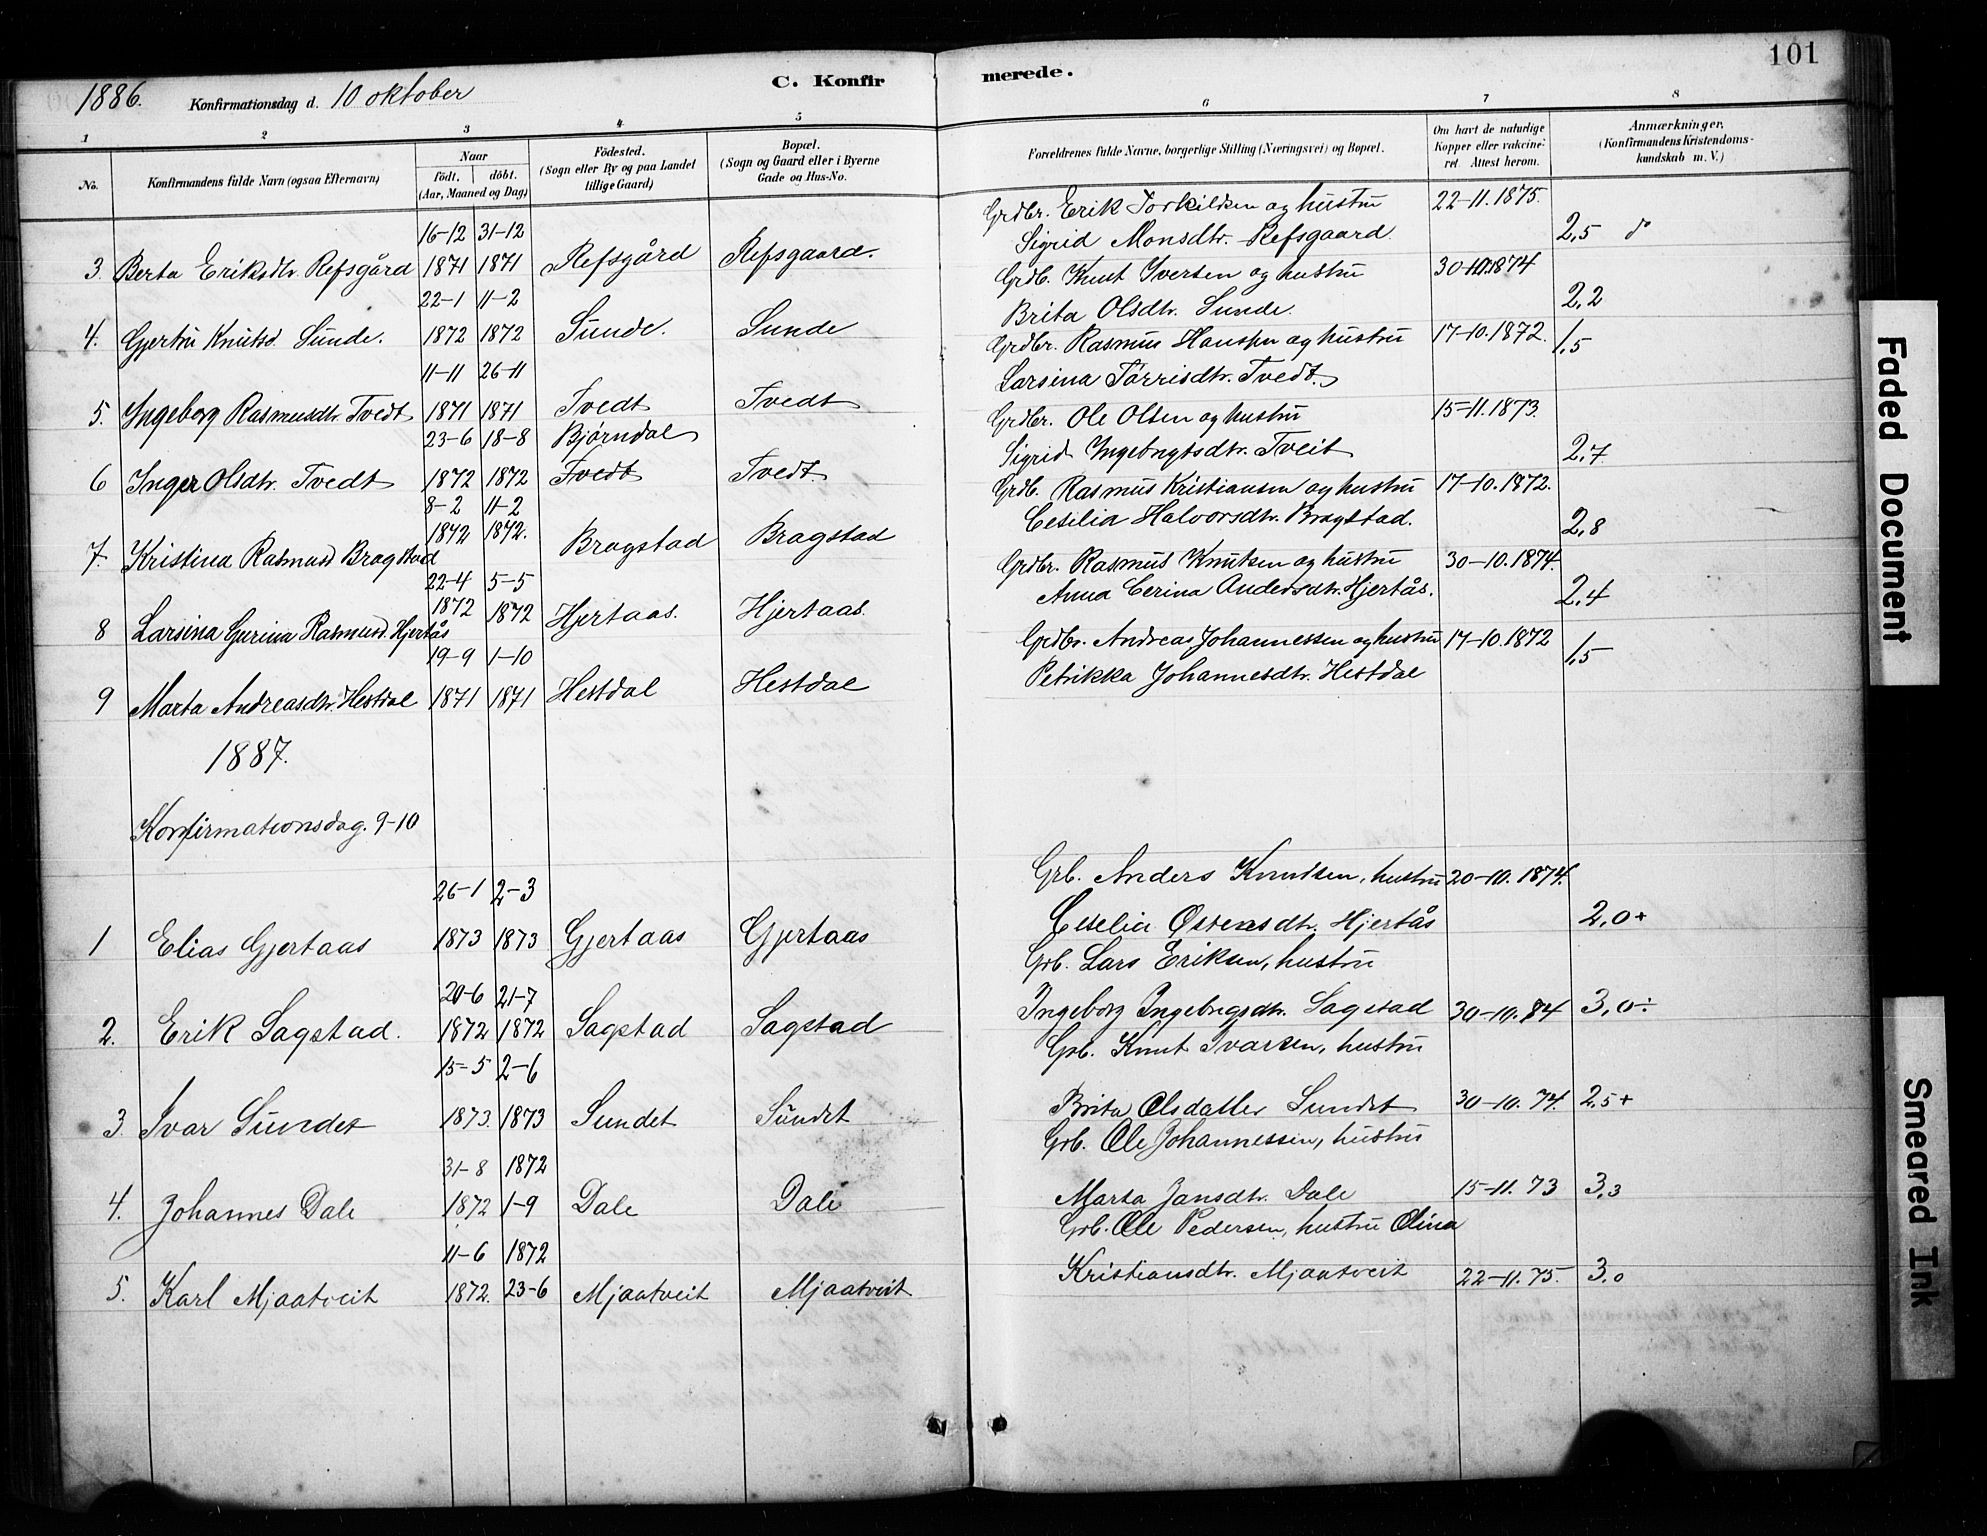 101
1886. Konfirmationsdag d. 10 oktober C. Konfirmerede.
1 2 3 4 5 6 7 8
No. Konfirmandens fulde Navn (ogsaa Efternavn) Naar födt. döbt. (Aar, Maaned og Dag) Födested. (Sogn eller By og paa Landet tillige Gaard) Bopæl. (Sogn og Gaard eller i Byerne Gade og Hus-No. Forældrenes fulde Navne, borgerlige Stilling (Næringsvei) og Bopæl. Om havt de naturlige Kopper eller vakcineret Attest herom. Anmærkninger. (Konfirmandens Kristendomskundskab m. V.)
16-12 31-12 Grdbr. Erik Torkildsen og hustru 22-11. 1875.
3. Berta Eriksdtr. Refsgård 1871 1871 Refsgård Refsgaard. Sigrid Monsdtr. Refsgaard 2,5
22-1 11-2 Grdb. Knut Iversen og hustru 30-10.1874
4. Gjertru Knutsd. Sunde. 1872 1872 Sunde. Sunde Brita Olsdtr. Sunde. 2,2
11-11 26-11 Grdbr. Rasmus Hansen og hustru 17-10.1872. 1,5
5. Ingeborg Rasmusdtr. Tvedt 1871 1871 Tvedt Tvedt Larsina Tørrisdtr. Tvedt.
23-6 18-8 Bjørndal Grdbr. Ole Olsen og hustru 15-11.1873.
6 Inger Olsdtr. Tvedt 1872 1872 Tvedt Tvedt Sigrid Ingebrigtsdtr. Tveit 2,7
8-2 11-2 Grdb. Rasmus Kristiansen og hustru 17-10.1872.
7. Kristina Rasmusd Bragstad 1872 1872. Bragstad Bragstad Cesilia Halvorsdtr. Bragstad. 2,8
22-4 5-5 Grdbr. Rasmus Knutsen og hustru 30-10.1874.
8 Larsina Gurina Rasmusd. Hjertås 1872 1872 Hjertaas. Hjertaas. Anna Cerina Andersdtr. Hjertås. 2,4
19-9 1-10 Grdbr. Andreas Johannessen og hustru 17-10.1872
9 Marta Andreasdtr. Hestdal 1871 1871 Hestdal Hestdal Petrikka Johannesdtr. Hestdal 1,5
1887.
Konfirmationsdag. 9-10
26-1 2-3 Grb. Anders Knudsen, hustru 20-10.1874.
1 Elias Gjertaas 1873 1873 Gjertaas Gjertaas Ceselia Østensdtr. Hjertås 2,0+
20-6 21-7 Grb. Lars Eriksen, hustru
2. Erik Sagstad. 1872 1872 Sagstad Sagstad Ingeborg Ingebrigsdtr. Sagstad 30-10.84 3,0÷
15-5 2-6 Grb. Knut Ivarsen, hustru
3. Ivar Sundet 1873. 1873 Sundet Sundet Brita Olsdatter Sundet 30-10.74. 2,5+
31-8 1872 Grb. Ole Johannessen, hustru
4. Johannes Dale 1872 1-9 Dale Dale Marta Jansdtr. Dale 15-11.73 3,3
11-6 1872 Grb. Ole Pedersen, hustru Olina
5. Karl Mjaatveit 1872. 23-6 Mjaatveit Mjaatveit Kristiansdtr. Mjaatveit 22-11.75. 3,0
Faded Document
Smeared Ink